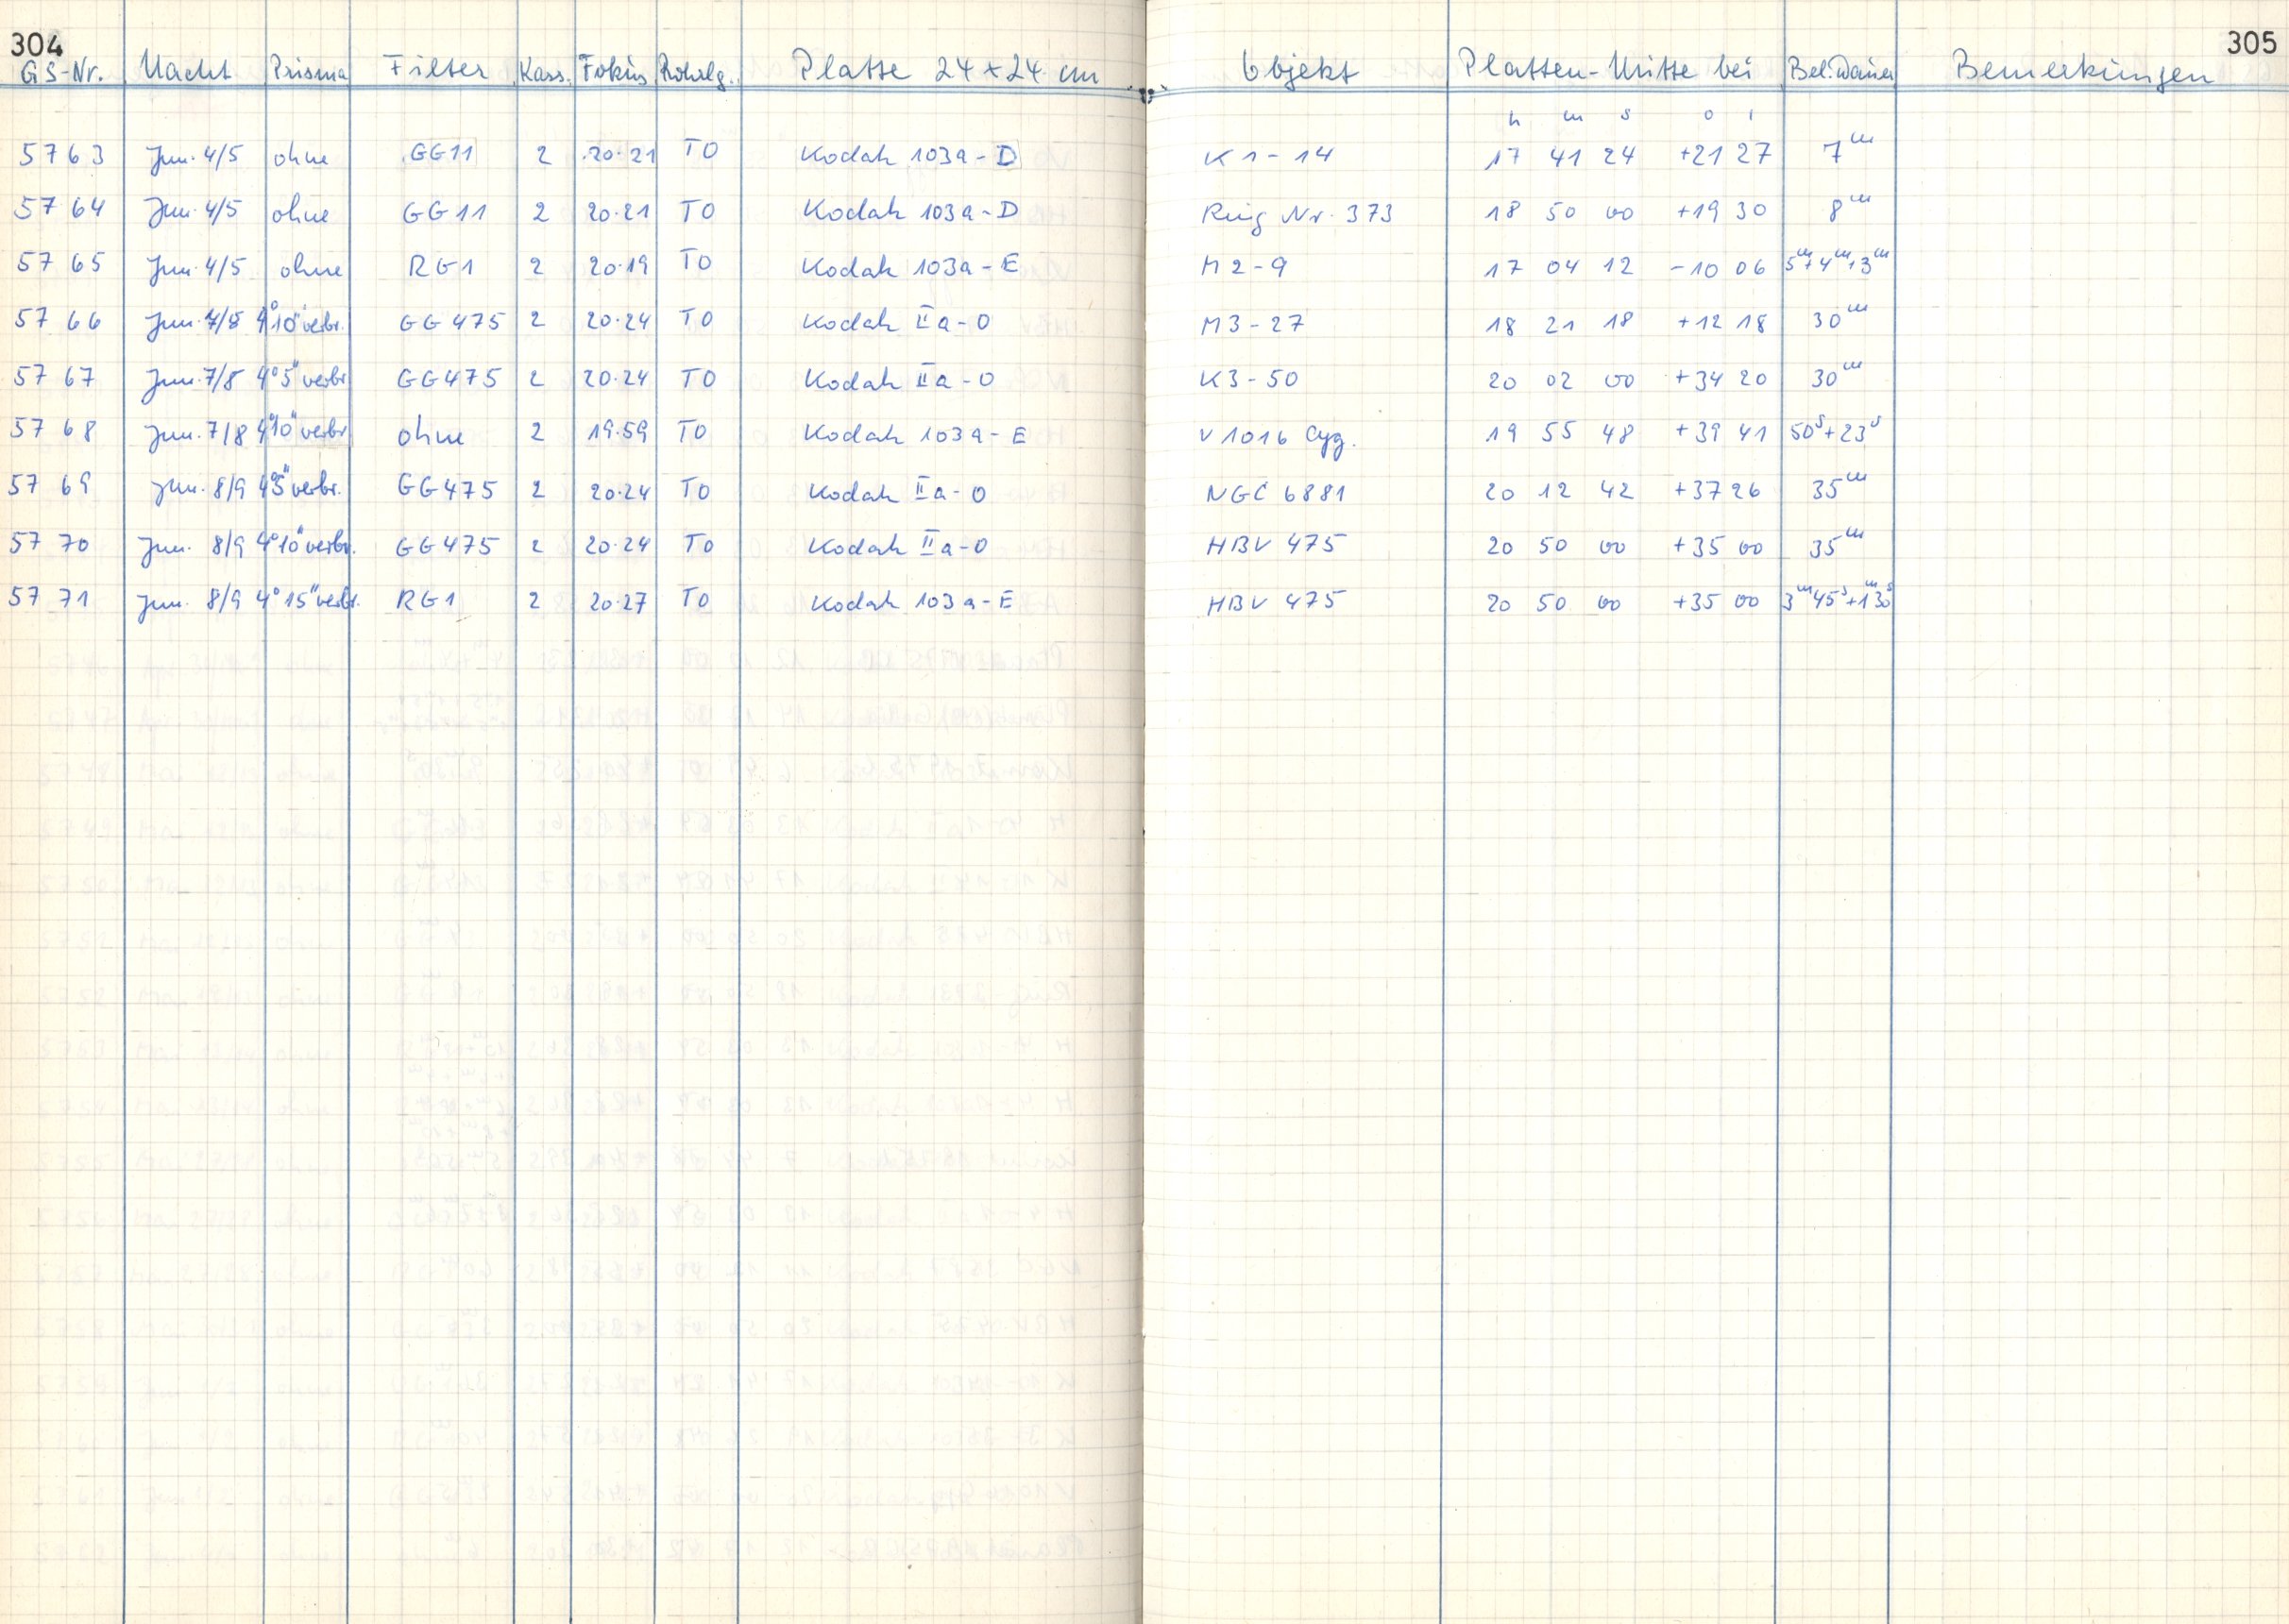 304
305
GS-Nr. Nacht Prisma Filter Kass. Fokus Rohrlg. Platte 24 x 24 cm Objekt Platten-Mitte bei Bel.Dauer Bemerkungen
h m s o '
5763 Jun. 4/5 ohne GG11 2 20.21 TO Kodak 103a-D K1-14 17 41 24 +21 27 7m
5764 Jun. 4/5 ohne GG11 2 20.21 TO Kodak 103a-D Ring Nr. 373 18 50 00 +19 30 8m
5765 Jun. 4/5 ohne RG1 2 20.19 TO Kodak 103a-E M2-9 17 04 12 -10 06 5m+4m+3m
5766 Jun. 7/8 4°10" verbr. GG475 2 20.24 TO Kodak IIa-O M3-27 18 21 18 +12 18 30m
5767 Jun. 7/8 4°5" verbr. GG475 2 20.24 TO Kodak IIa-O K3-50 20 02 00 +34 20 30m
5768 Jun. 7/8 4°10" verbr. ohne 2 19.59 TO Kodak 103a-E V1016 Cyg. 19 55 48 +39 41 50s+23s
5769 Jun. 8/9 4°5" verbr. GG475 2 20.24 TO Kodak IIa-O NGC 6881 20 12 42 +37 26 35m
5770 Jun. 8/9 4°10" verbr. GG475 2 20.24 TO Kodak IIa-O HBV 475 20 50 00 +35 00 35m
5771 Jun. 8/9 4°15" verbr. RG1 2 20.27 TO Kodak 103a-E HBV 475 20 50 00 +35 00 3m45s+1m30s